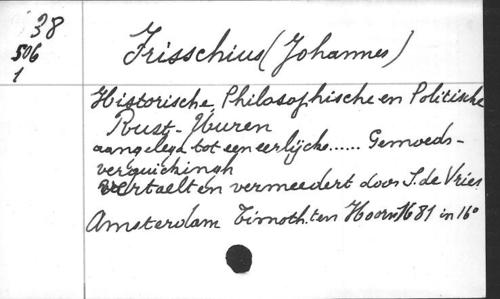 38
506
1
Frisschius (Johannes)
Historische, Philosophische en Politische
Rust-Uuren
aangelegd tot een eerlijcke...... Gemoeds-
verquickingh
Vertaelt en vermeedert door S. de Vries
Amsterdam Timoth. ten Hoorn 1681 in 16°